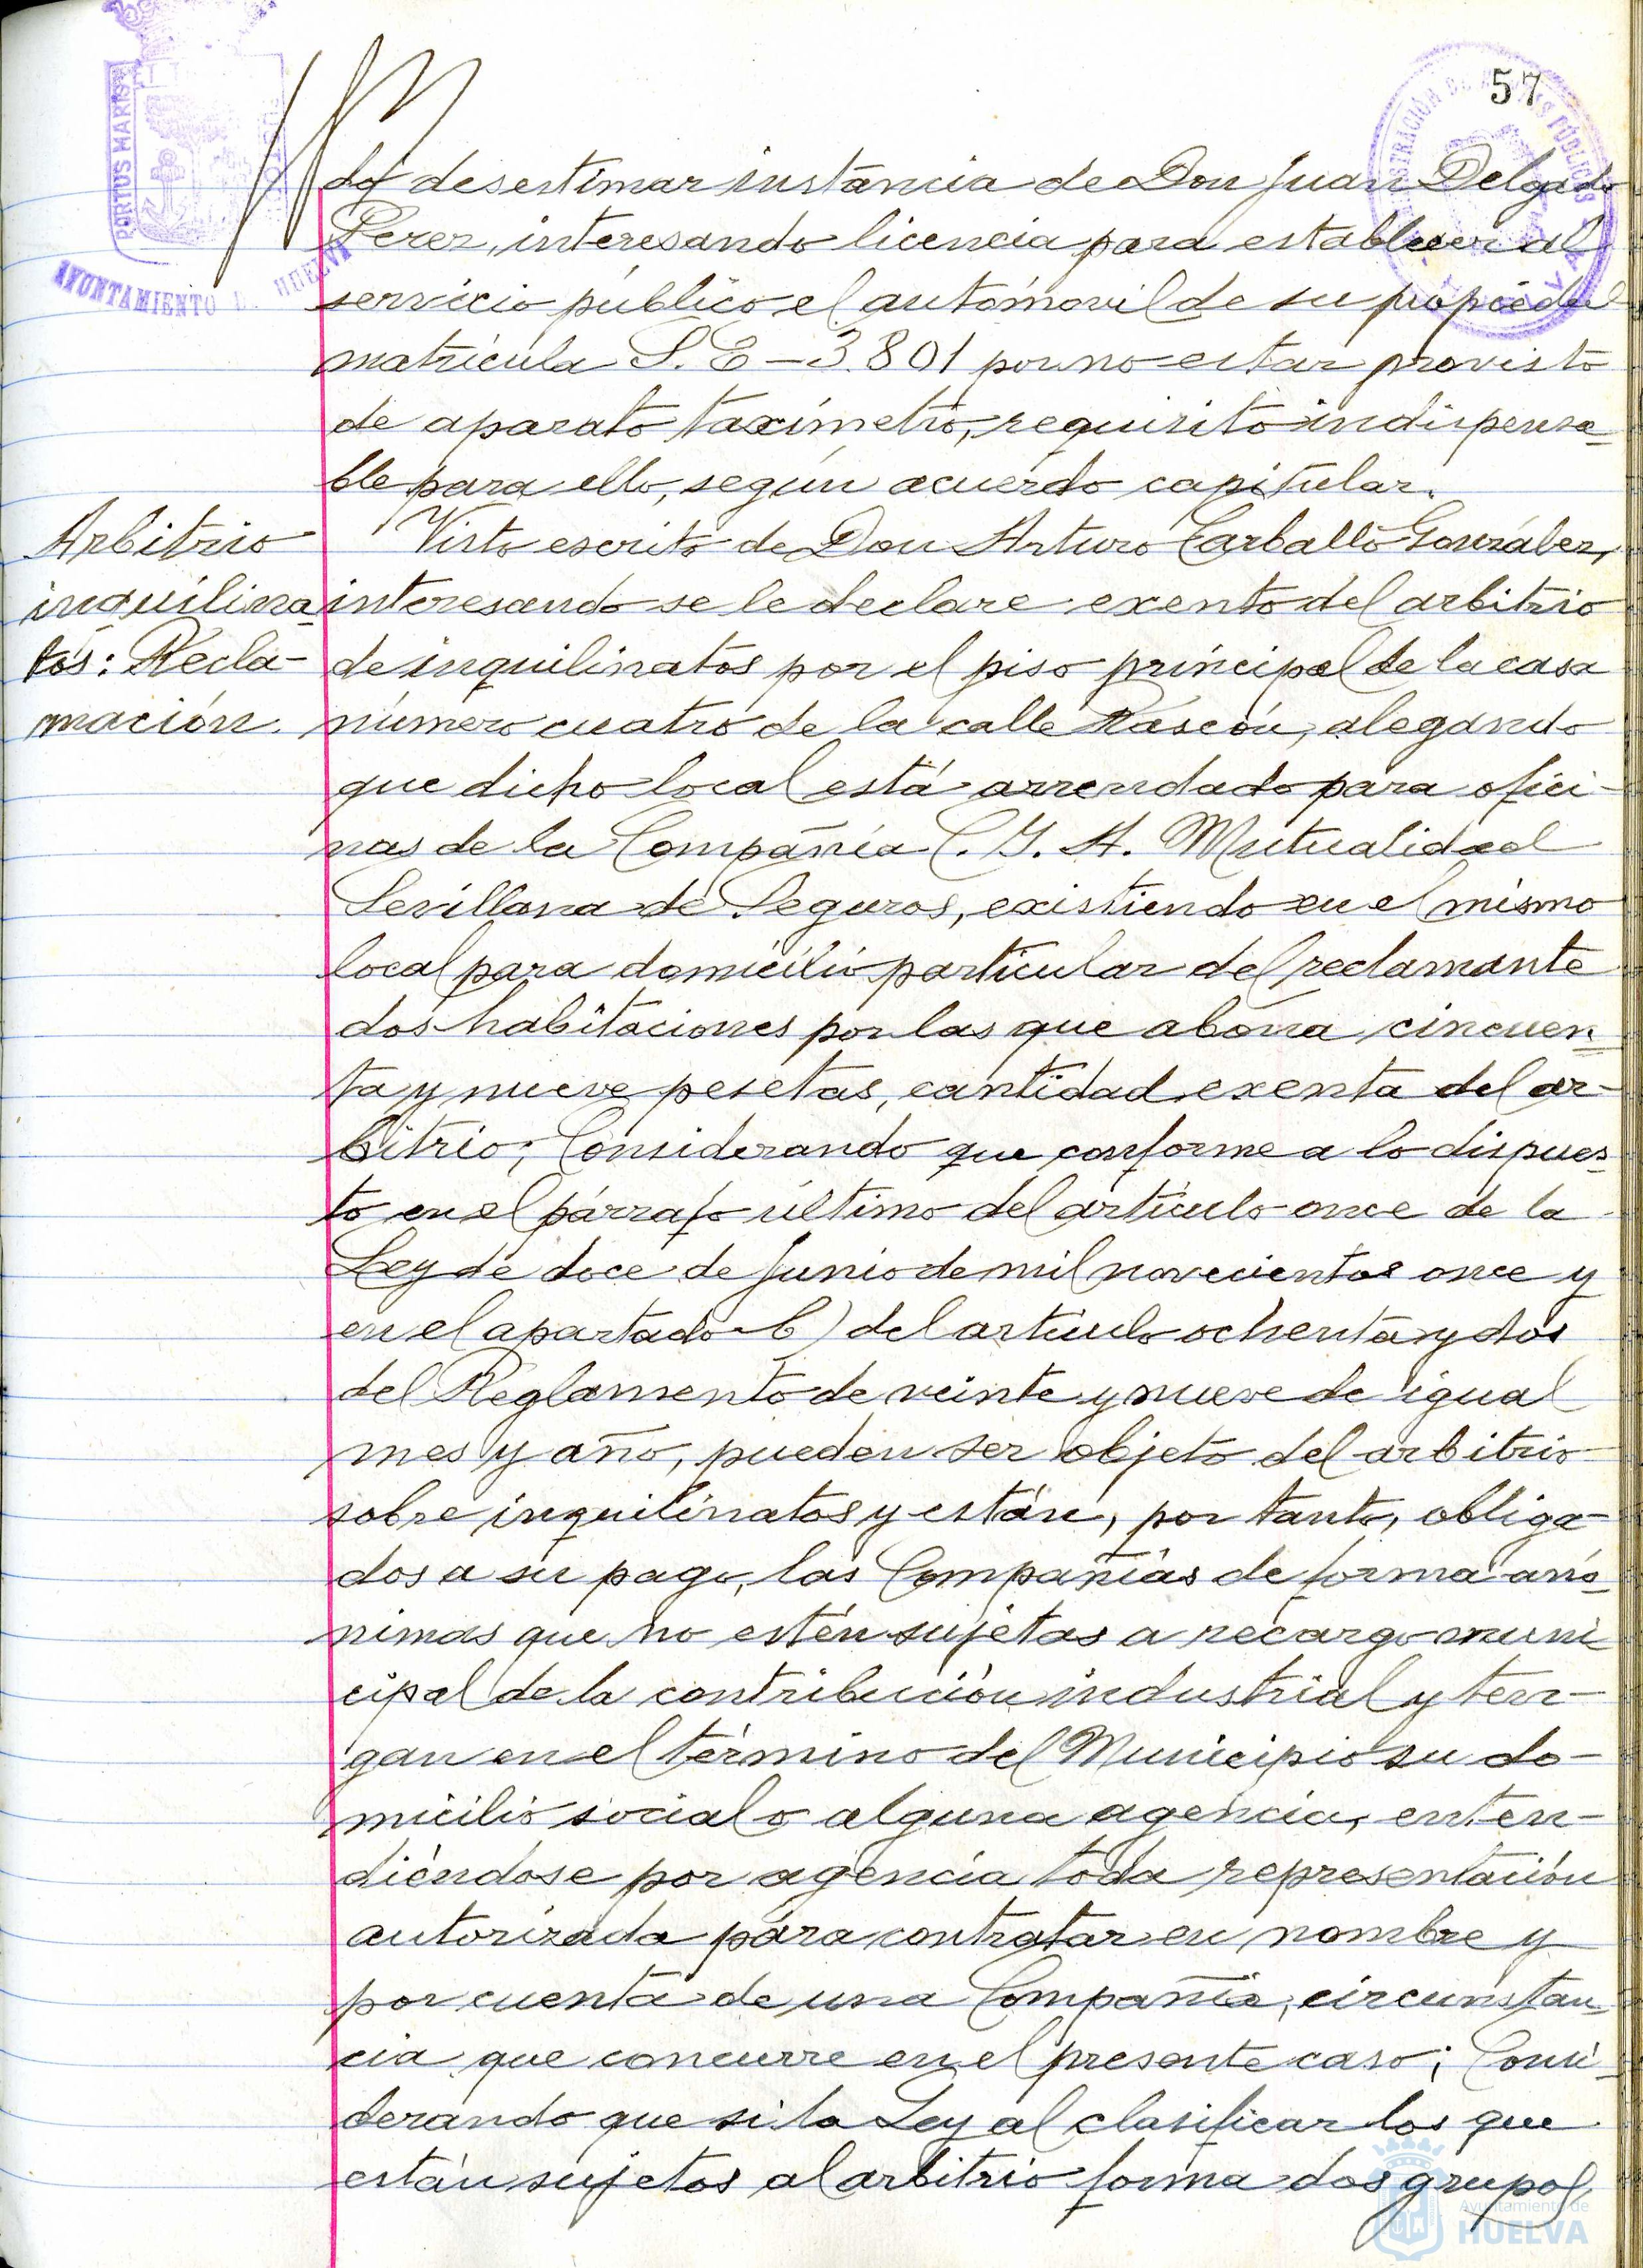 57
PORTUS MARIS
AYUNTAMIENTO DE HUELVA
desestimar instancia de Don Juan Delgado
Perez, interesando licencia para establecer al
servicio público el automovil de su propiedad
matrícula S.E-3.801 por no estar provisto
de aparato taxímetro, requisito indispensa-
ble para ello, según acuerdo capitular.
Arbitrio
inquilina-
tos: Recla-
mación.
Visto escrito de Don Arturo Carballo González,
interesando se le declare exento del arbitrio
de inquilinatos por el piso principal de la casa
número cuatro de la calle Rascón, alegando
que dicho local está arrendado para ofici-
nas de la Compañía C.G.A. Mutualidad
Sevillana de Seguros, existiendo en el mismo
local para domicilio particular del reclamante
dos habitaciones por las que abona cincuen-
ta y nueve pesetas, cantidad exenta del ar-
bitrio; Considerando que conforme a lo dispues-
to en el párrafo último del artículo once de la
Ley de doce de Junio de mil novecientos once y
en el apartado b) del artículo ochenta y dos
del Reglamento de veinte y nueve de igual
mes y año, pueden ser objeto del arbitrio
sobre inquilinatos y están, por tanto, obliga-
dos a su pago, las Compañías de forma anó-
nimas que no estén sujetas a recargo muni
cipal de la contribución industrial y ten-
gan en el término del Municipio su do-
micilio social o alguna agencia, enten-
diéndose por agencia toda representación
autorizada para contratar en nombre y
por cuenta de una Compañía, circunstan-
cia que concurre en el presente caso; Consi-
derando que si la Ley al clasificar los que
están sujetos al arbitrio forma dos grupos
Ayuntamiento de
HUELVA